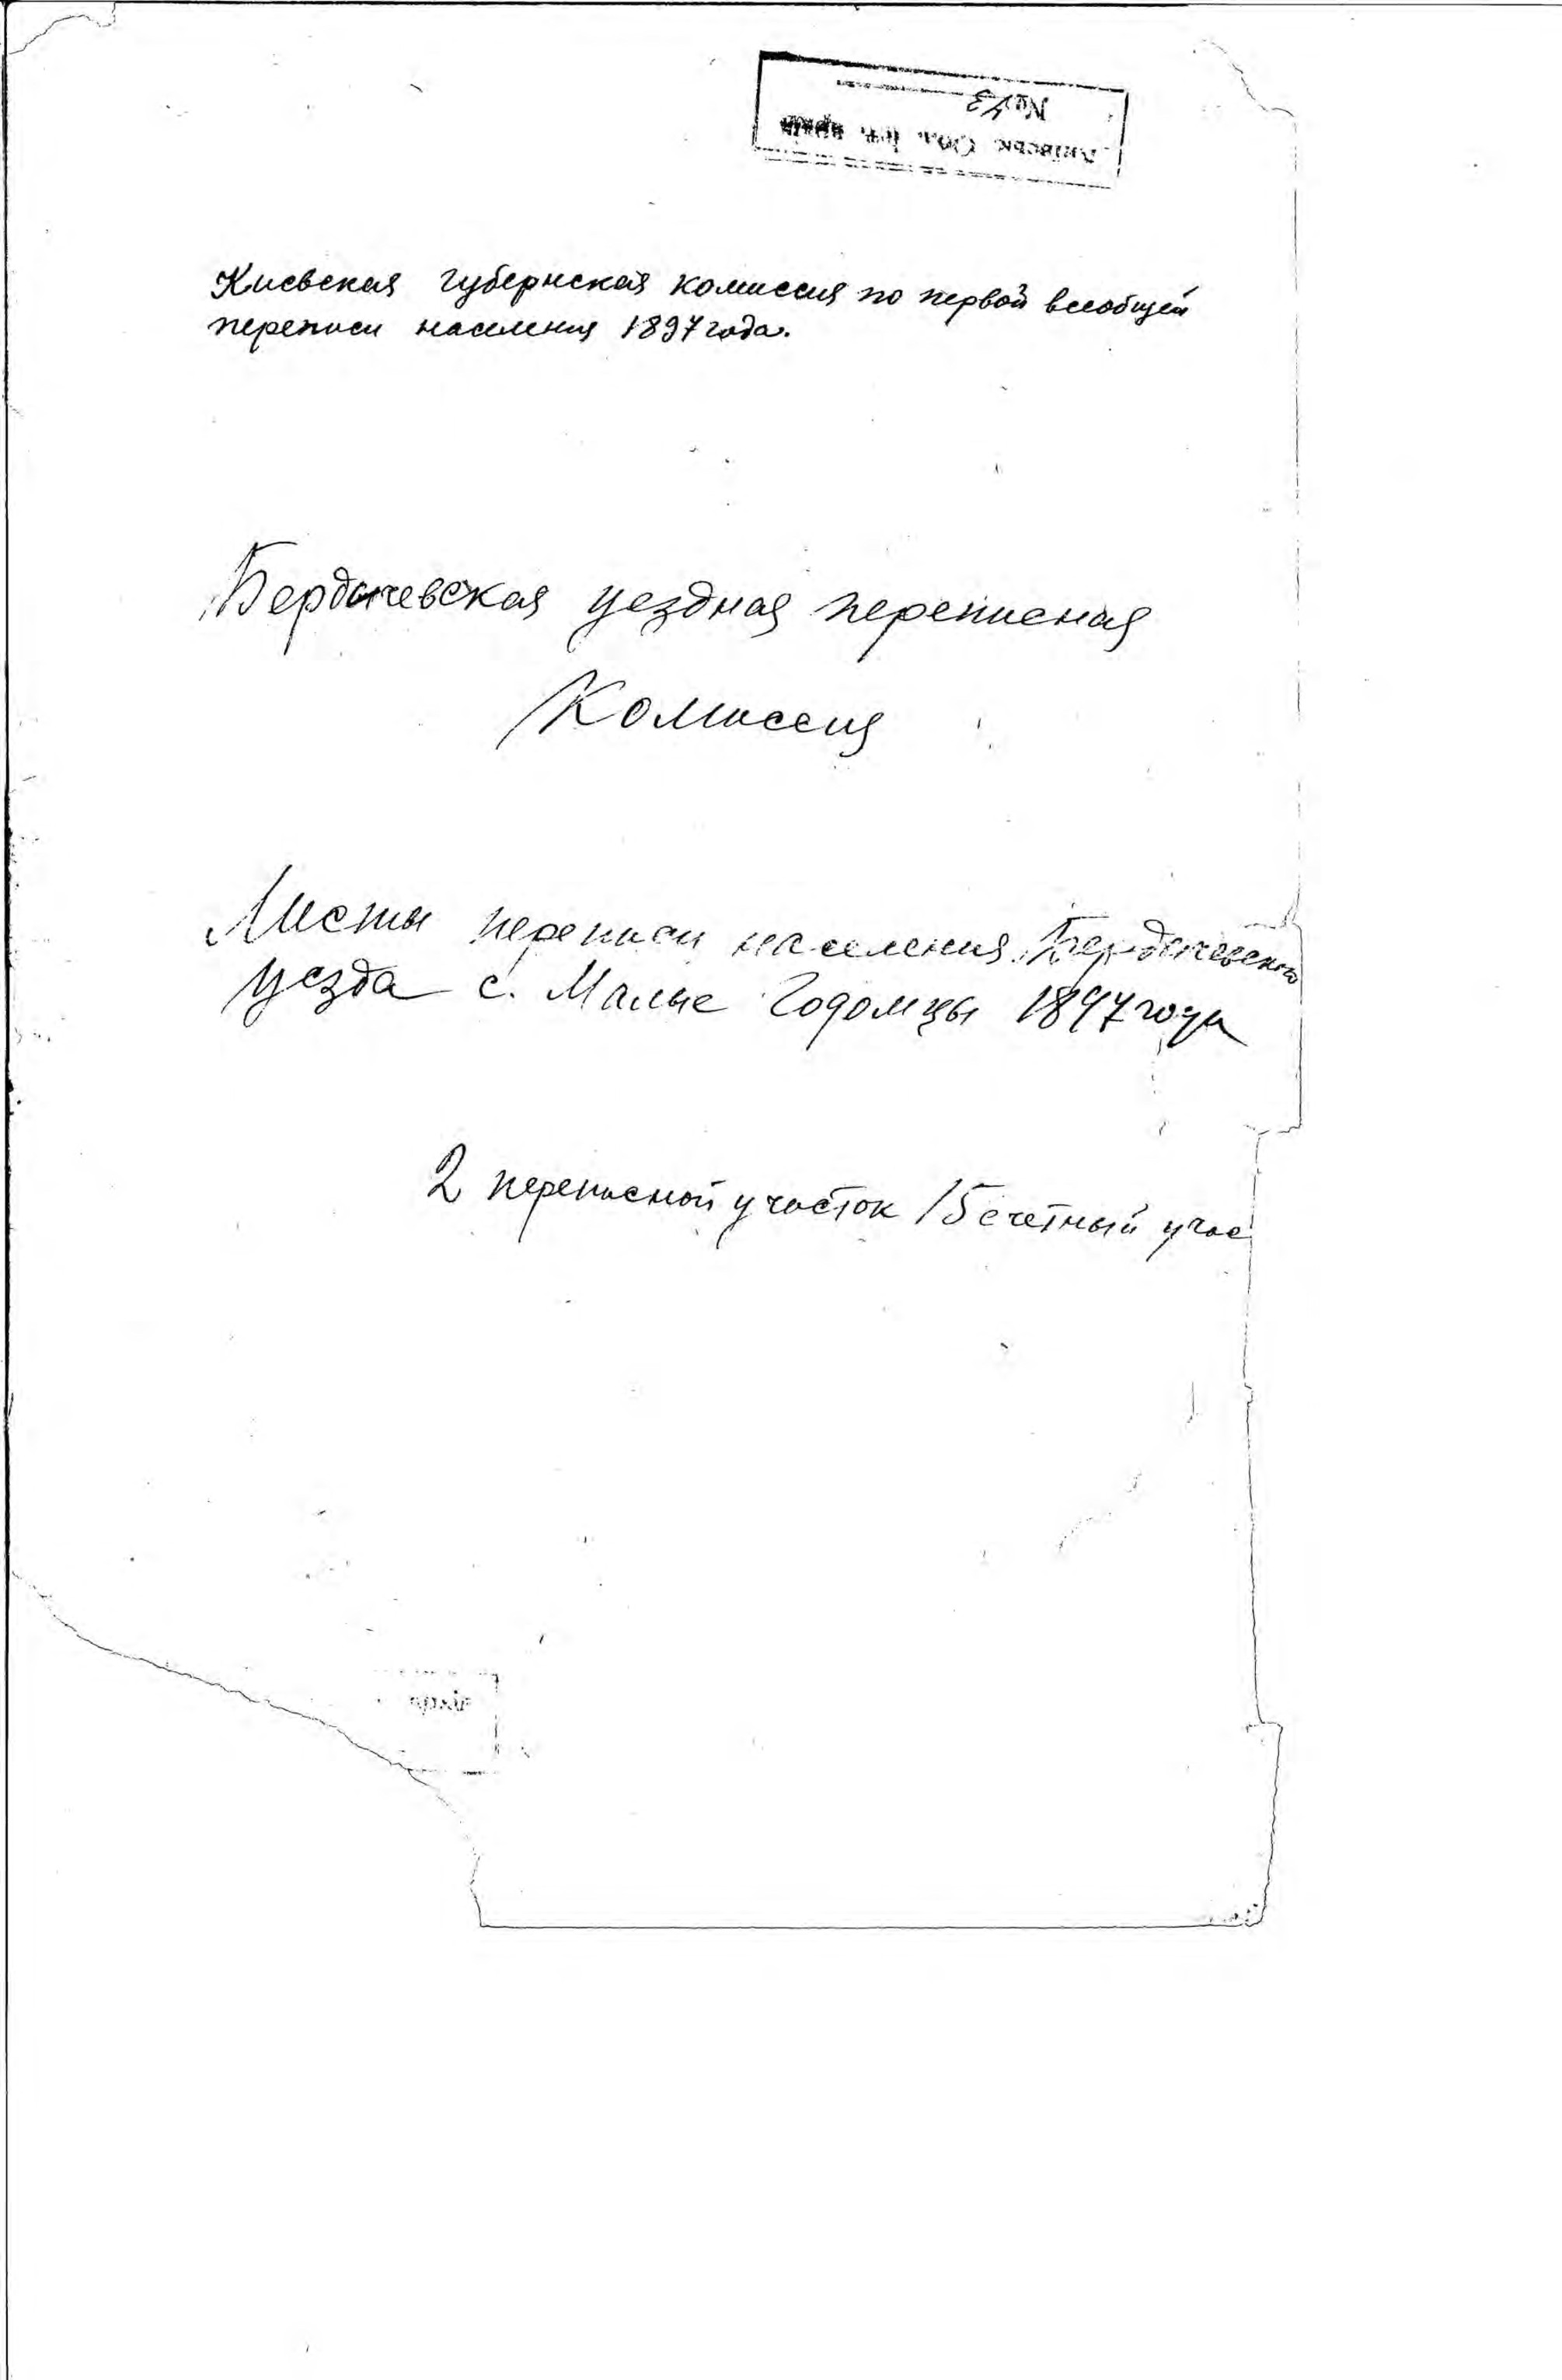 № 43
Киевская губернская комиссия по первой всеобщей
переписи населения 1897 года.
Бердичевская уездная переписная
Комиссия
Листы переписи населения Бердичевского
уезда с. Малые Годомцы 1897 года
2 переписной участок 15 счетный учас